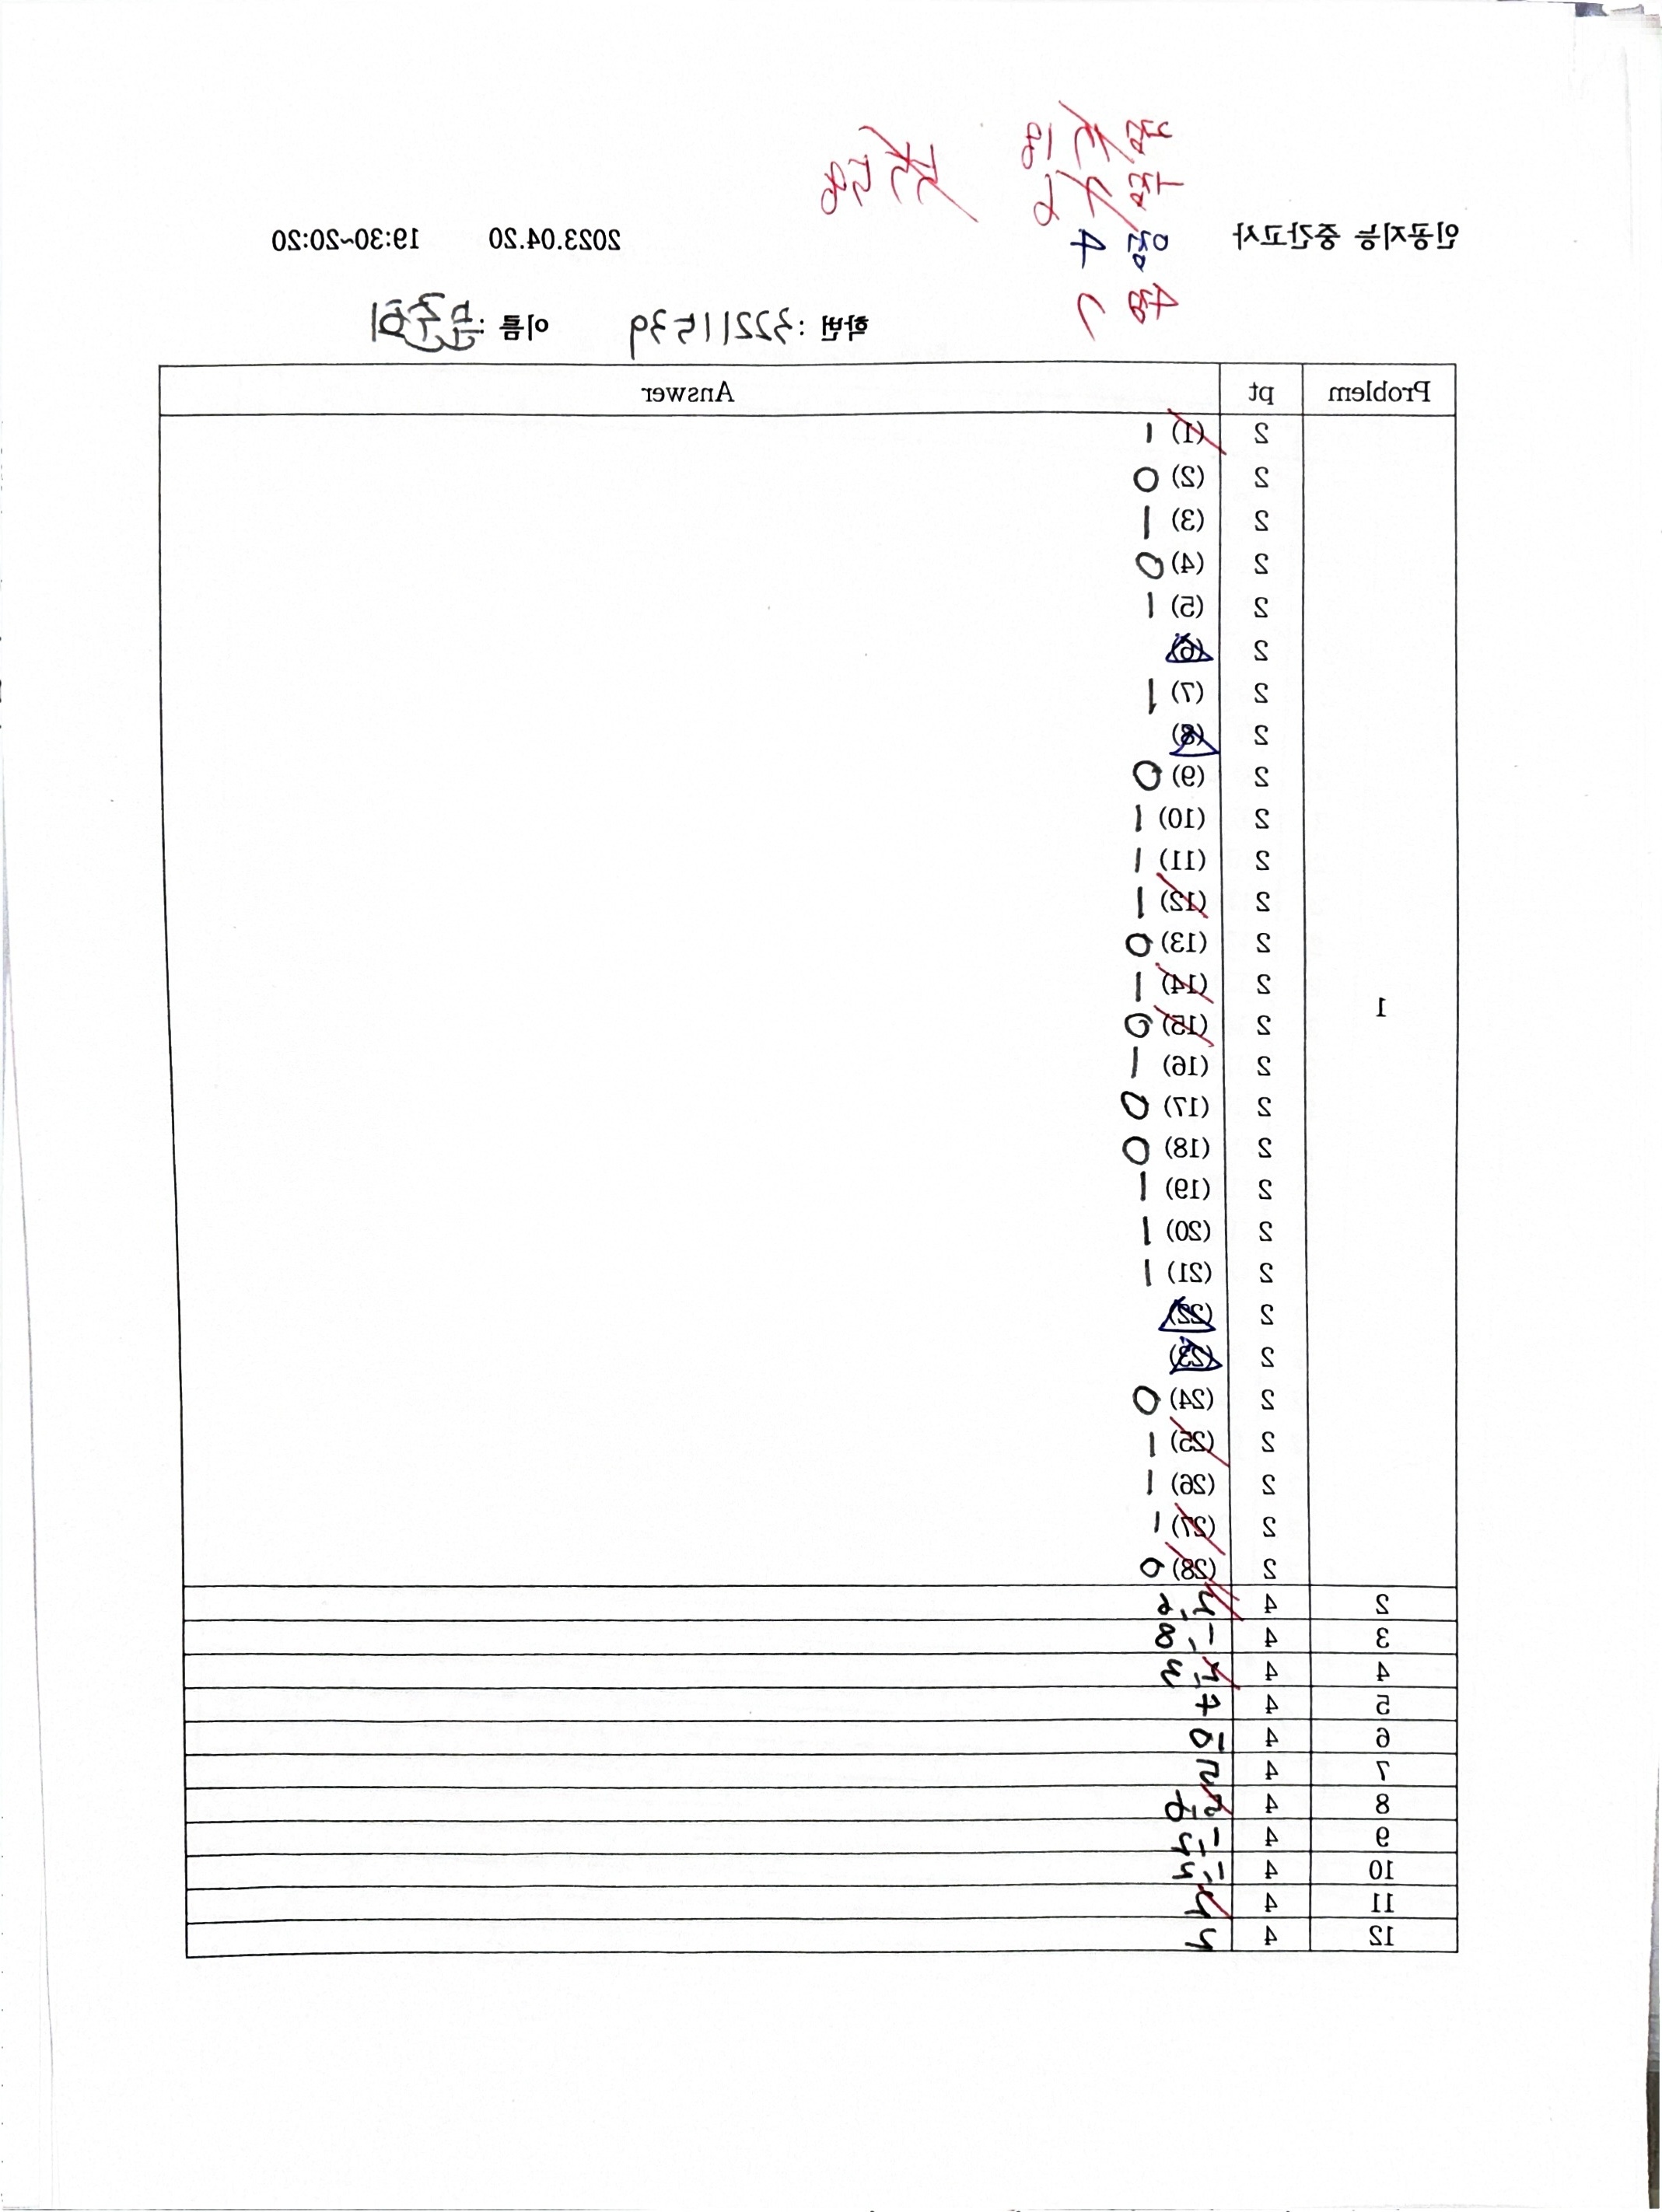 인공지능 중간고사 2023.04.20 19:30~20:20
학번 : 32211539 이름 : 문주희
Problem pt Answer
1
2 (1) 1
2 (2) 0
2 (3) 1
2 (4) 0
2 (5) 1
2 (6)
2 (7) 1
2 (8)
2 (9) 0
2 (10) 1
2 (11) 1
2 (12) 1
2 (13) 0
2 (14) 1
2 (15) 0
2 (16) 1
2 (17) 0
2 (18) 0
2 (19) 1
2 (20) 1
2 (21) 1
2 (22)
2 (23)
2 (24) 0
2 (25) 1
2 (26) 1
2 (27) 1
2 (28) 0
2 4
3 4
4 4
5 4
6 4
7 4
8 4
9 4
10 4
11 4
12 4